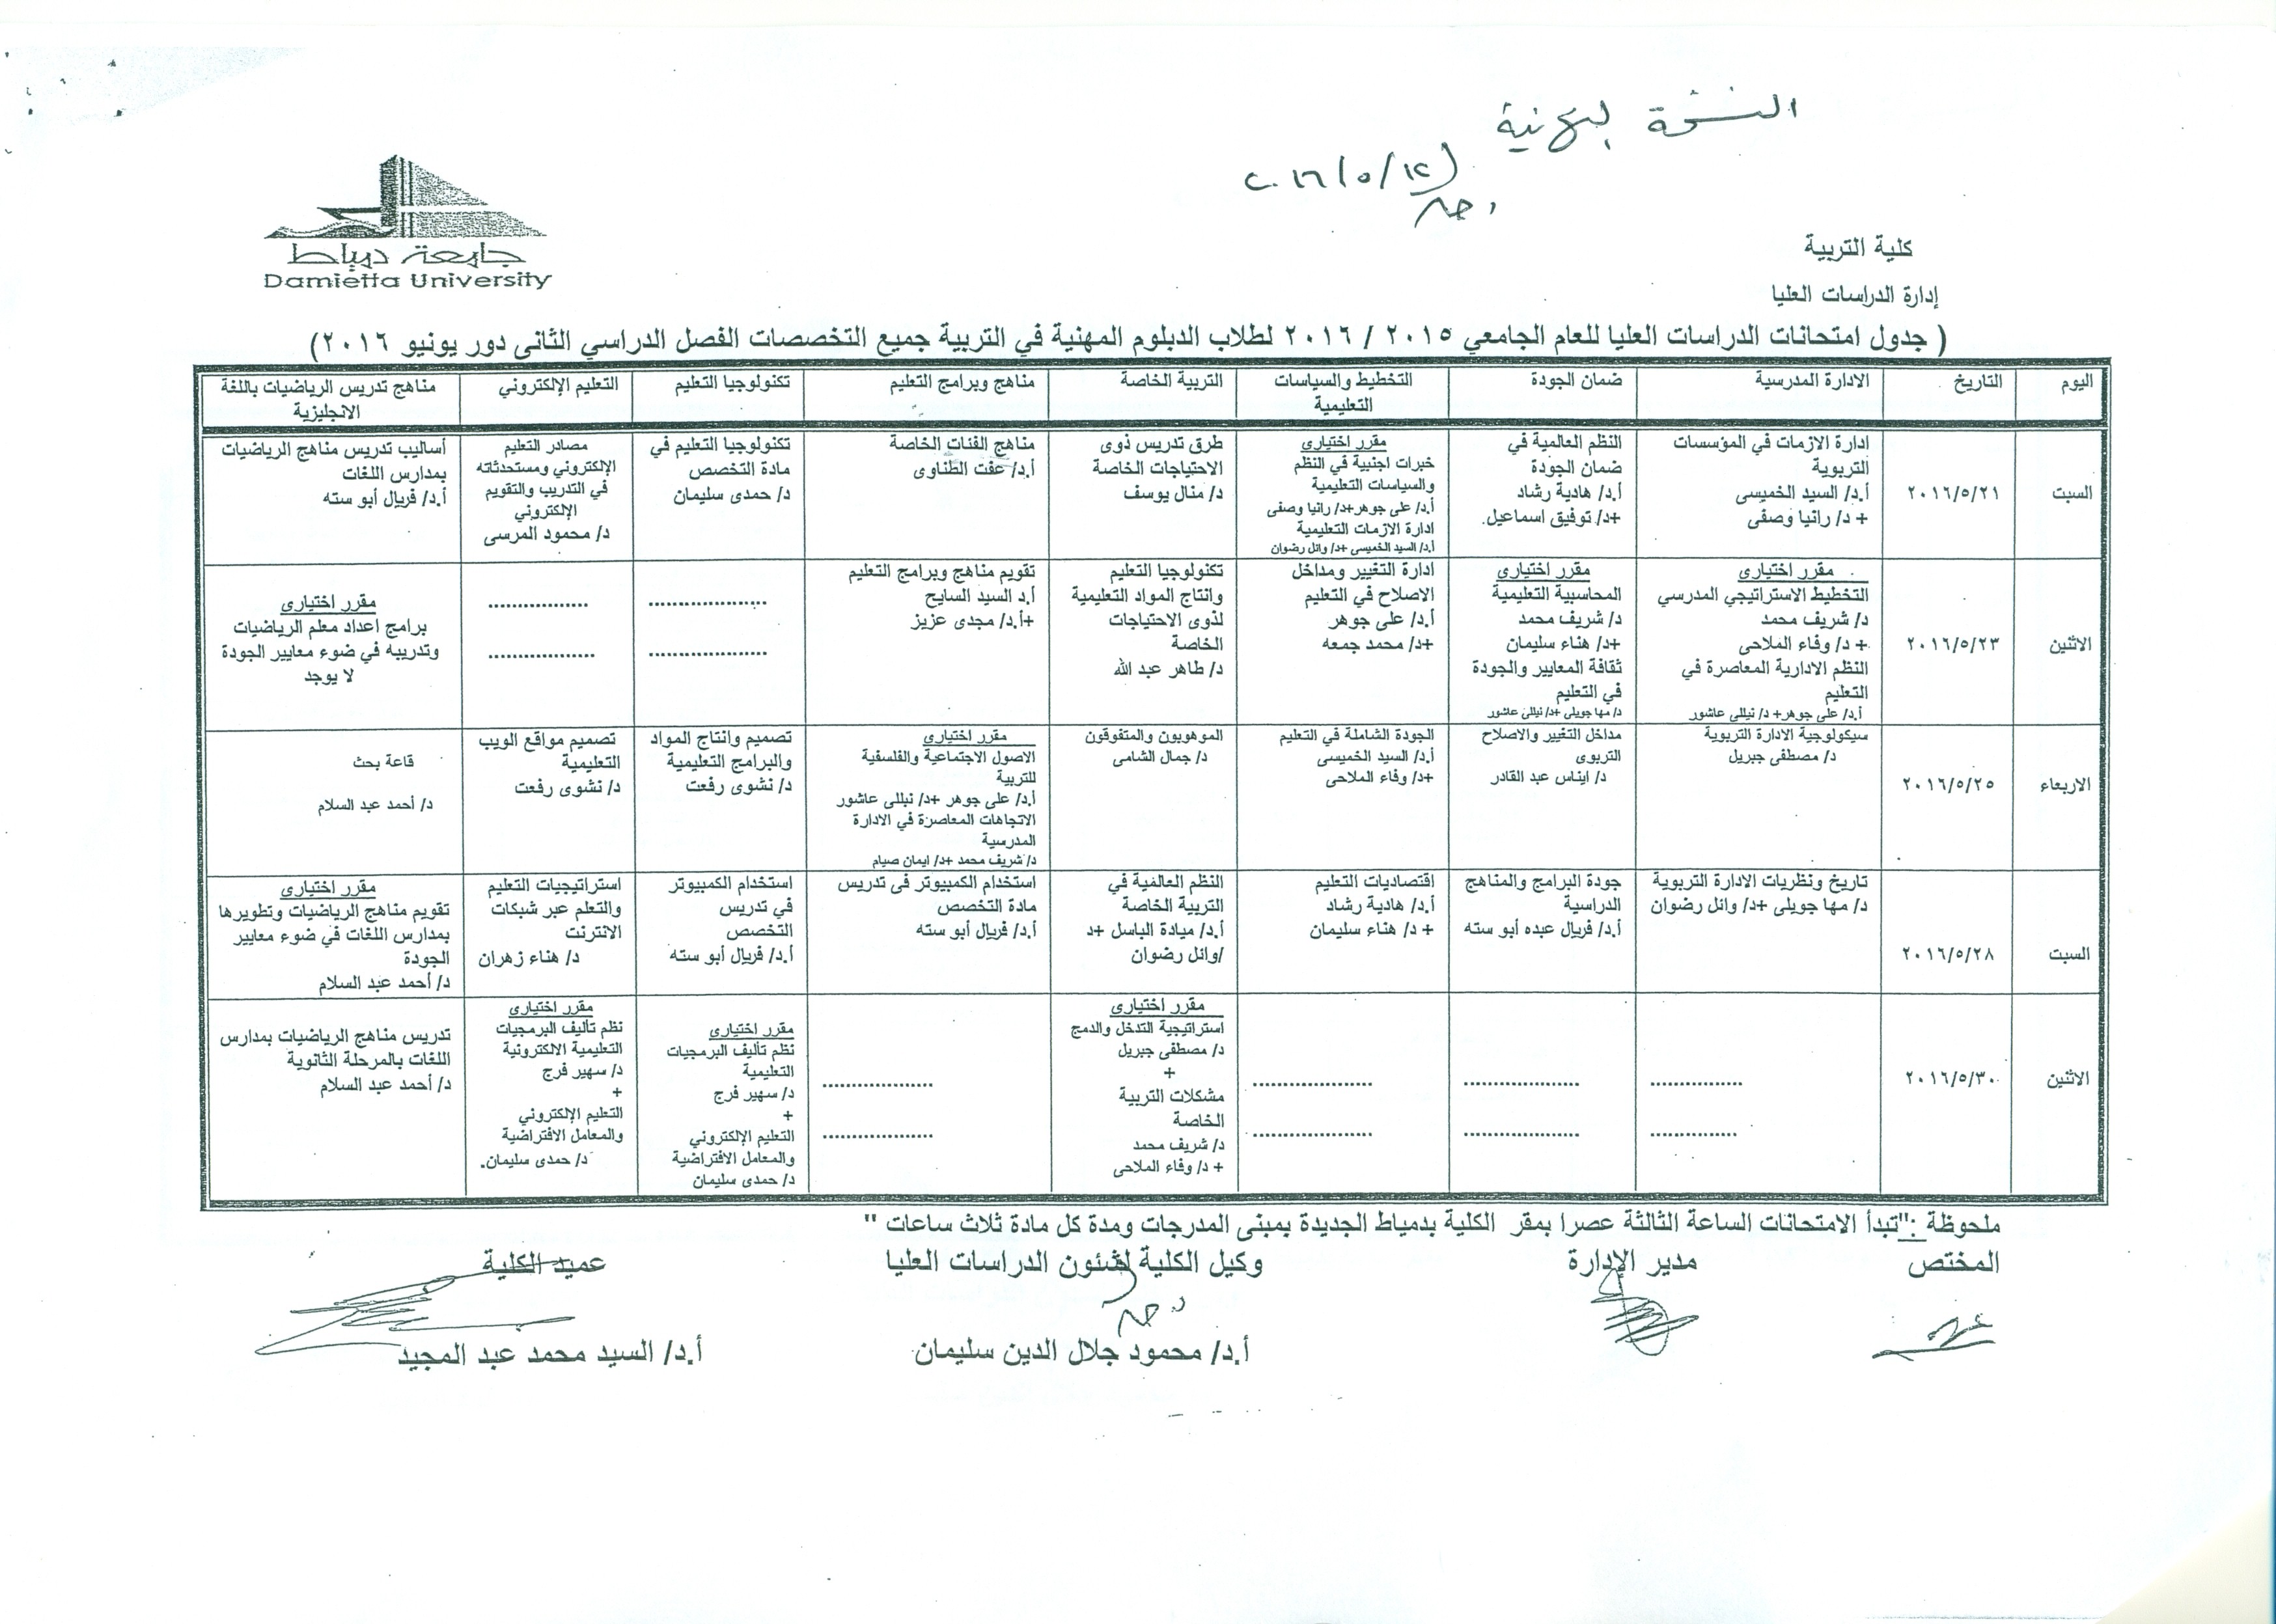 النسخة النهائية
٢٠١٦/٥/١٢
جامعة دمياط
Damietta University
كلية التربية
إدارة الدراسات العليا
( جدول امتحانات الدراسات العليا للعام الجامعي ٢٠١٥ / ٢٠١٦ لطلاب الدبلوم المهنية في التربية جميع التخصصات الفصل الدراسي الثانى دور يونيو ٢٠١٦)
اليوم
التاريخ
الادارة المدرسية
ضمان الجودة
التخطيط والسياسات
التعليمية
التربية الخاصة
مناهج وبرامج التعليم
تكنولوجيا التعليم
التعليم الإلكتروني
مناهج تدريس الرياضيات باللغة
الانجليزية
السبت
٢٠١٦/٥/٢١
ادارة الازمات في المؤسسات
التربوية
أ.د/ السيد الخميسى
+ د/ رانيا وصفى
النظم العالمية في
ضمان الجودة
أ.د/ هادية رشاد
+د/ توفيق اسماعيل.
مقرر اختيارى
خبرات اجنبية في النظم
والسياسات التعليمية
أ.د/ على جوهر+د/ رانيا وصفى
ادارة الازمات التعليمية
أ.د/ السيد الخميسى +د/ وائل رضوان
طرق تدريس ذوى
الاحتياجات الخاصة
د/ منال يوسف
مناهج الفئات الخاصة
أ.د/ عفت الطناوى
تكنولوجيا التعليم في
مادة التخصص
د/ حمدى سليمان
مصادر التعليم
الإلكتروني ومستحدثاته
في التدريب والتقويم
الإلكتروني
د/ محمود المرسى
أساليب تدريس مناهج الرياضيات
بمدارس اللغات
أ.د/ فريال أبو سته
الاثنين
٢٠١٦/٥/٢٣
مقرر اختيارى
التخطيط الاستراتيجي المدرسي
د/ شريف محمد
+ د/ وفاء الملاحى
النظم الادارية المعاصرة في
التعليم
أ.د/ على جوهر+ د/ نيللى عاشور
مقرر اختيارى
المحاسبية التعليمية
د/ شريف محمد
+د/ هناء سليمان
ثقافة المعايير والجودة
في التعليم
د/ مها جويلى +د/ نيللى عاشور
ادارة التغيير ومداخل
الاصلاح في التعليم
أ.د/ على جوهر
+د/ محمد جمعه
تكنولوجيا التعليم
وانتاج المواد التعليمية
لذوى الاحتياجات
الخاصة
د/ طاهر عبد الله
تقويم مناهج وبرامج التعليم
أ.د السيد السايح
+أ.د/ مجدى عزيز
...................
...................
.................
.................
مقرر اختيارى
برامج اعداد معلم الرياضيات
وتدريبه في ضوء معايير الجودة
لا يوجد
الاربعاء
٢٠١٦/٥/٢٥
سيكولوجية الادارة التربوية
د/ مصطفى جبريل
مداخل التغيير والاصلاح
التربوى
د/ ايناس عبد القادر
الجودة الشاملة في التعليم
أ.د/ السيد الخميسى
+د/ وفاء الملاحى
الموهوبون والمتفوقون
د/ جمال الشامى
مقرر اختيارى
الاصول الاجتماعية والفلسفية
للتربية
أ.د/ على جوهر +د/ نيللى عاشور
الاتجاهات المعاصرة في الادارة
المدرسية
د/ شريف محمد +د/ ايمان صيام
تصميم وانتاج المواد
والبرامج التعليمية
د/ نشوى رفعت
تصميم مواقع الويب
التعليمية
د/ نشوى رفعت
قاعة بحث
د/ أحمد عبد السلام
السبت
٢٠١٦/٥/٢٨
تاريخ ونظريات الادارة التربوية
د/ مها جويلى +د/ وائل رضوان
جودة البرامج والمناهج
الدراسية
أ.د/ فريال عبده أبو سته
اقتصاديات التعليم
أ.د/ هادية رشاد
+ د/ هناء سليمان
النظم العالمية في
التربية الخاصة
أ.د/ ميادة الباسل +د
/وائل رضوان
استخدام الكمبيوتر فى تدريس
مادة التخصص
أ.د/ فريال أبو سته
استخدام الكمبيوتر
في تدريس
التخصص
أ.د/ فريال أبو سته
استراتيجيات التعليم
والتعلم عبر شبكات
الانترنت
د/ هناء زهران
مقرر اختيارى
تقويم مناهج الرياضيات وتطويرها
بمدارس اللغات في ضوء معايير
الجودة
د/ أحمد عبد السلام
الاثنين
٢٠١٦/٥/٣٠
...............
...............
...................
...................
...................
...................
مقرر اختيارى
استراتيجية التدخل والدمج
د/ مصطفى جبريل
+
مشكلات التربية
الخاصة
د/ شريف محمد
+ د/ وفاء الملاحى
..................
..................
مقرر اختيارى
نظم تأليف البرمجيات
التعليمية
د/ سهير فرج
+
التعليم الإلكتروني
والمعامل الافتراضية
د/ حمدى سليمان
مقرر اختيارى
نظم تأليف البرمجيات
التعليمية الالكترونية
د/ سهير فرج
+
التعليم الإلكتروني
والمعامل الافتراضية
د/ حمدى سليمان.
تدريس مناهج الرياضيات بمدارس
اللغات بالمرحلة الثانوية
د/ أحمد عبد السلام
ملحوظة :"تبدأ الامتحانات الساعة الثالثة عصرا بمقر الكلية بدمياط الجديدة بمبنى المدرجات ومدة كل مادة ثلاث ساعات "
المختص
مدير الإدارة
وكيل الكلية لشئون الدراسات العليا
عميد الكلية
أ.د/ محمود جلال الدين سليمان
أ.د/ السيد محمد عبد المجيد